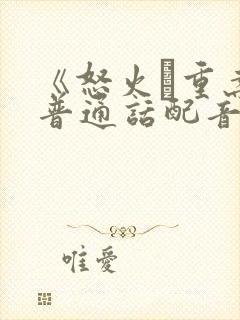 《怒火·重案
普通話配音
唯愛